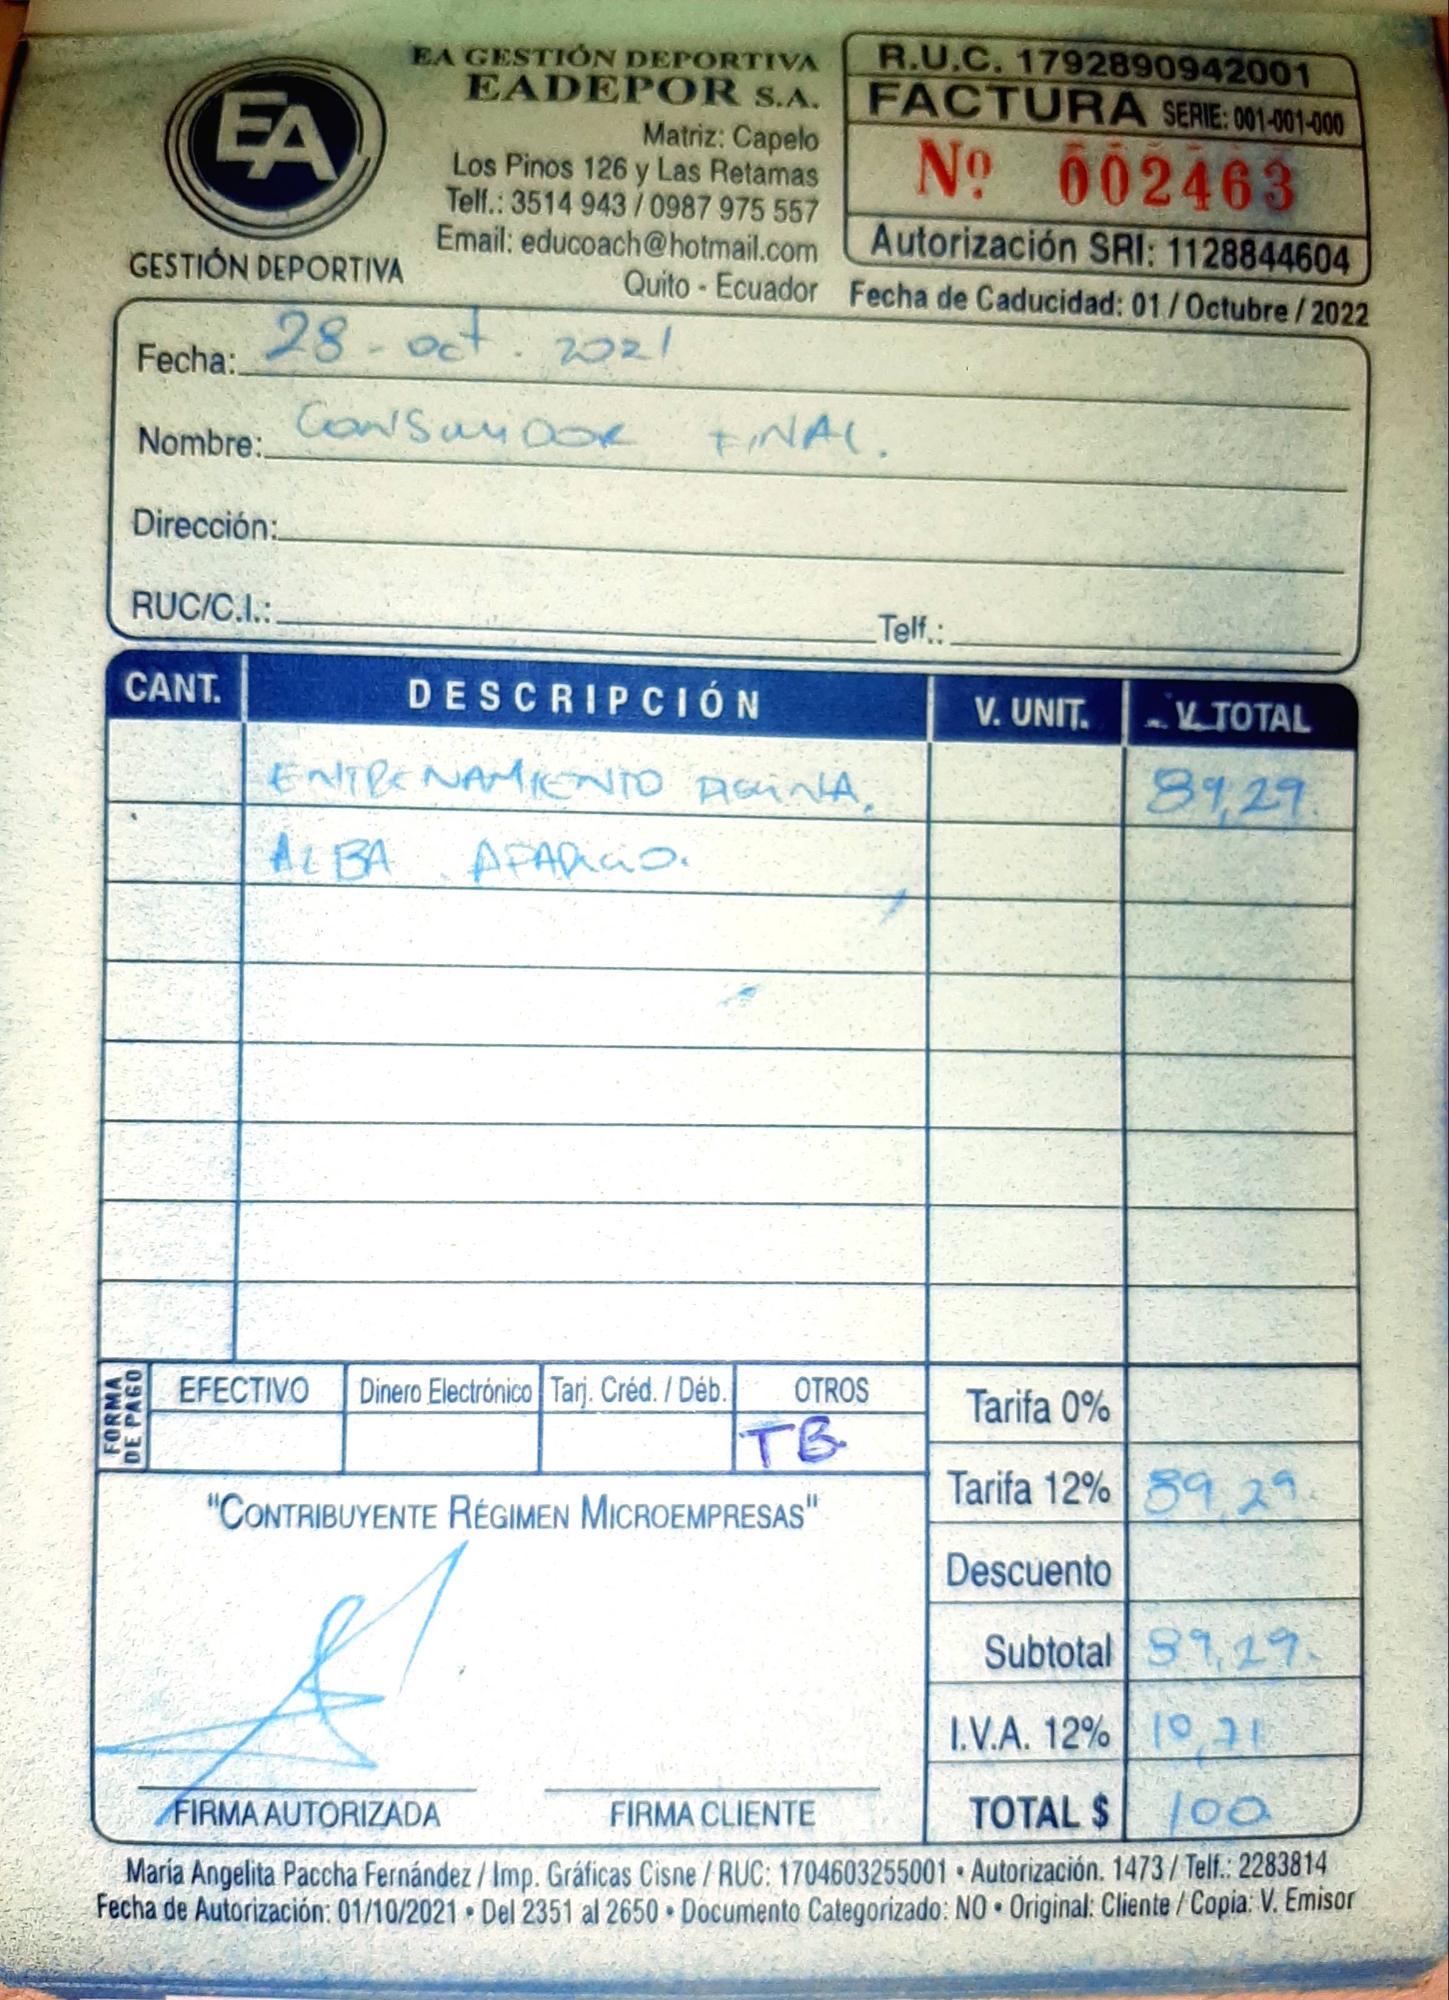 EA
GESTIÓN DEPORTIVA
EA GESTIÓN DEPORTIVA
EADEPOR S.A.
Matriz: Capelo
Los Pinos 126 y Las Retamas
Telf.: 3514 943 / 0987 975 557
Email: educoach@hotmail.com
Quito - Ecuador
R.U.C. 1792890942001
FACTURA SERIE: 001-001-000
Nº 002463
Autorización SRI: 1128844604
Fecha de Caducidad: 01 / Octubre / 2022
Fecha: 28 - oct . 2021
Nombre: CONSUMIDOR FINAL.
Dirección:
RUC/C.I.: Telf.:
CANT. DESCRIPCIÓN V. UNIT. V. TOTAL
ENTRENAMIENTO 89,29.
ALBA APARICIO.
FORMA DE PAGO
EFECTIVO Dinero Electrónico Tarj. Créd. / Déb. OTROS
TB
"CONTRIBUYENTE RÉGIMEN MICROEMPRESAS"
FIRMA AUTORIZADA FIRMA CLIENTE
Tarifa 0%
Tarifa 12% 89,29.
Descuento
Subtotal 89,29.
I.V.A. 12% 10,71
TOTAL $ 100
María Angelita Paccha Fernández / Imp. Gráficas Cisne / RUC: 1704603255001 • Autorización. 1473 / Telf.: 2283814
Fecha de Autorización: 01/10/2021 • Del 2351 al 2650 • Documento Categorizado: NO • Original: Cliente / Copia: V. Emisor